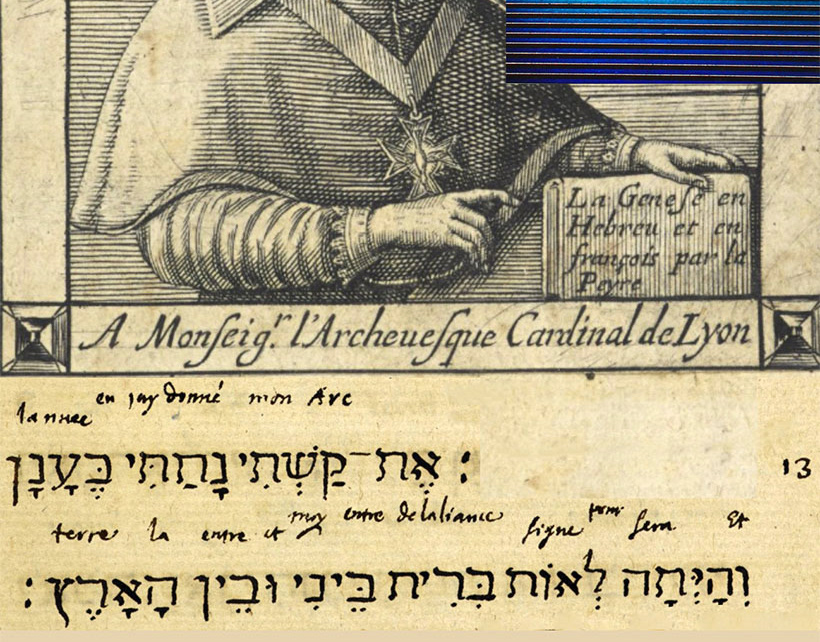 La Geneſe en
Hebreu et en
françois par la
Peyre
A Monſeig.r l'Archeueſque Cardinal de Lyon
la nuee en jay donné mon Arc
13 : אֶת־קַשְׁתִּי נָתַתִּי בֶּעָנָן
terre la entre et moy entre de laliance ſigne pour ſera Et
וְהָיְתָה לְאוֹת בְּרִית בֵּינִי וּבֵין הָאָרֶץ :